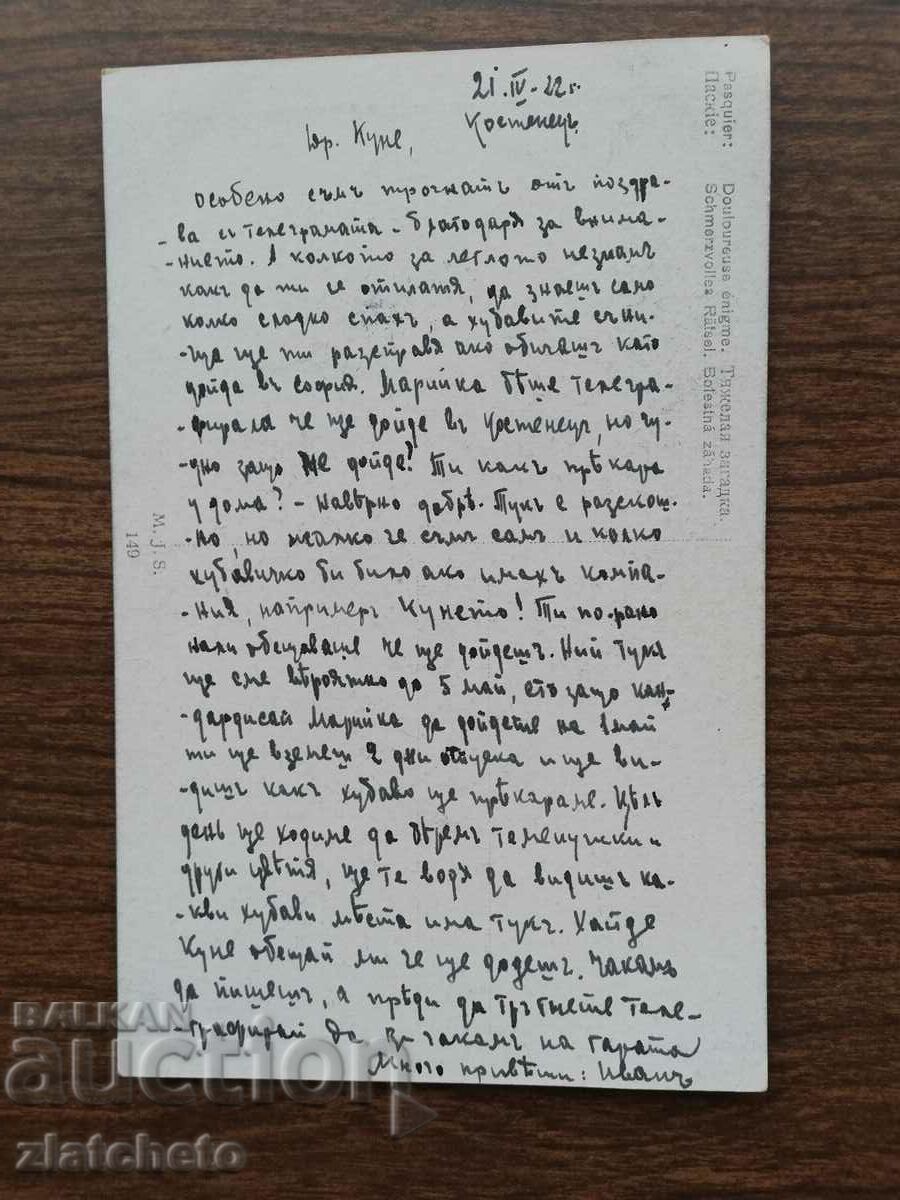 21.IV.22 г.
Костенецъ
Юр. Куне,
особено съмъ трогнатъ отъ поздра-
-ва съ телеграмата - благодаря за внима-
-нието. А колкото за леглото незнамъ
какъ да ти се отплатя, да знаешъ само
колко сладко спахъ, а хубавите съни-
-ща ще ти разправя ако обичашъ като
дойда въ София. Марийка бѣше телегра-
-фирала че ще дойде въ Костенецъ, но чу-
-дно защо не дойде? Ти какъ прѣкара
у дома? - навѣрно добрѣ. Тукъ е разкош-
-но, но жалко че съмъ самъ и колко
хубавичко би било ако имахъ компа-
-ния, напримеръ Кунето! Ти по-рано
нали обещаваше че ще дойдешъ. Ний тукъ
ще сме вѣроятно до 5 май, ето защо кан-
-дардисай Марийка да дойдете на 1 май
ти ще вземеш 2 дни отпуска и ще ви-
-дишъ какъ хубаво ще прѣкараме. Цѣлъ
день ще ходиме да беремъ теменужки и
други цвѣтя, ще те водя да видишъ ка-
-кви хубави мѣста има тукъ. Хайде
Куне обещай ми че ще додешъ. Чакамъ
да пишешъ, а прѣди да тръгнете теле-
-графирай да ви чакамъ на гарата
Много привѣти: Иванъ
Pasquier: Douloureuse énigme. Тяжелая загадка.
Паскіе: Schmerzvolles Rätsel. Bolestná záhada.
M. J. S.
149
BALKAN
auction
zlatcheto